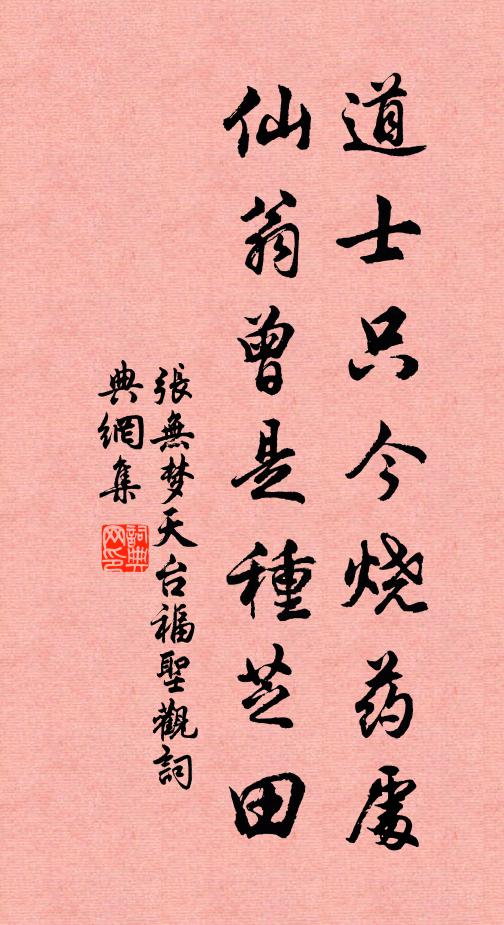 道士只今烧药處
仙翁曾是種芝田
張無梦天台福聖觀詞
典網集
詞典
网印